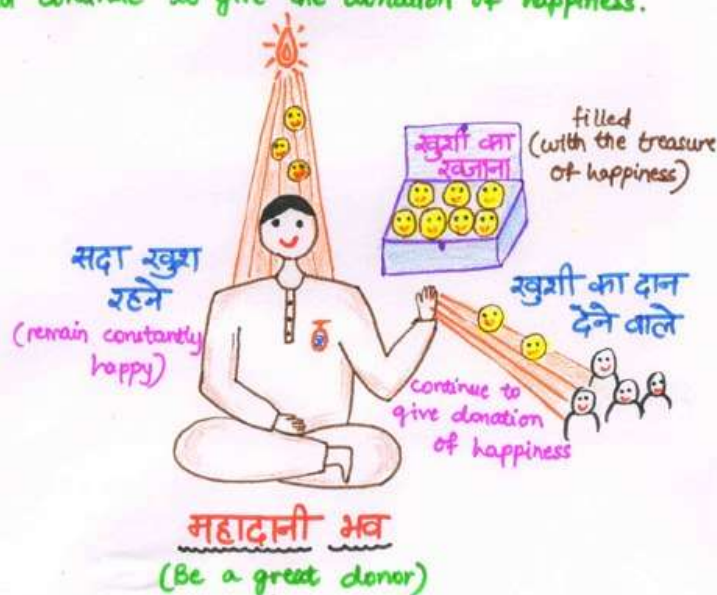 continue to give the donation of happiness.
खुशी का
खजाना
filled
(with the treasure
of happiness)
सदा खुश
रहने
(remain constantly
happy)
खुशी का दान
देने वाले
continue to
give donation
of happiness
महादानी भव
(Be a great donor)